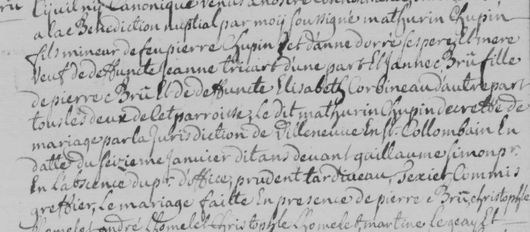 Civil ny Canonique venus a nostre
a la c Benediction nuptial par moy soussigné mathurin Chupin
fils mineur de feu pierre Chupin et d'anne dorré ses pere et mere
veuf de deffuncte Jeanne tricart d'une part Et Janne c Brû fille
de pierre c Brû Et de deffuncte Elisabeth Corbineau d'autre part
tous les deux de cet parroisse, Le dit mathurin Chupin decretté de
mariage par la Jurisdiction de villeneuve en st. Collombain En
datte du seizieme Janvier dit ans devant guillaume simon pr.
En l'abscence du pr. d'office, prudent tardiveau, texier Commis
greffier, Le mariage faitte En presence de pierre c Brû, christophle
homelet andré Lhomelet Christophle Lhomelet martine legeay Et